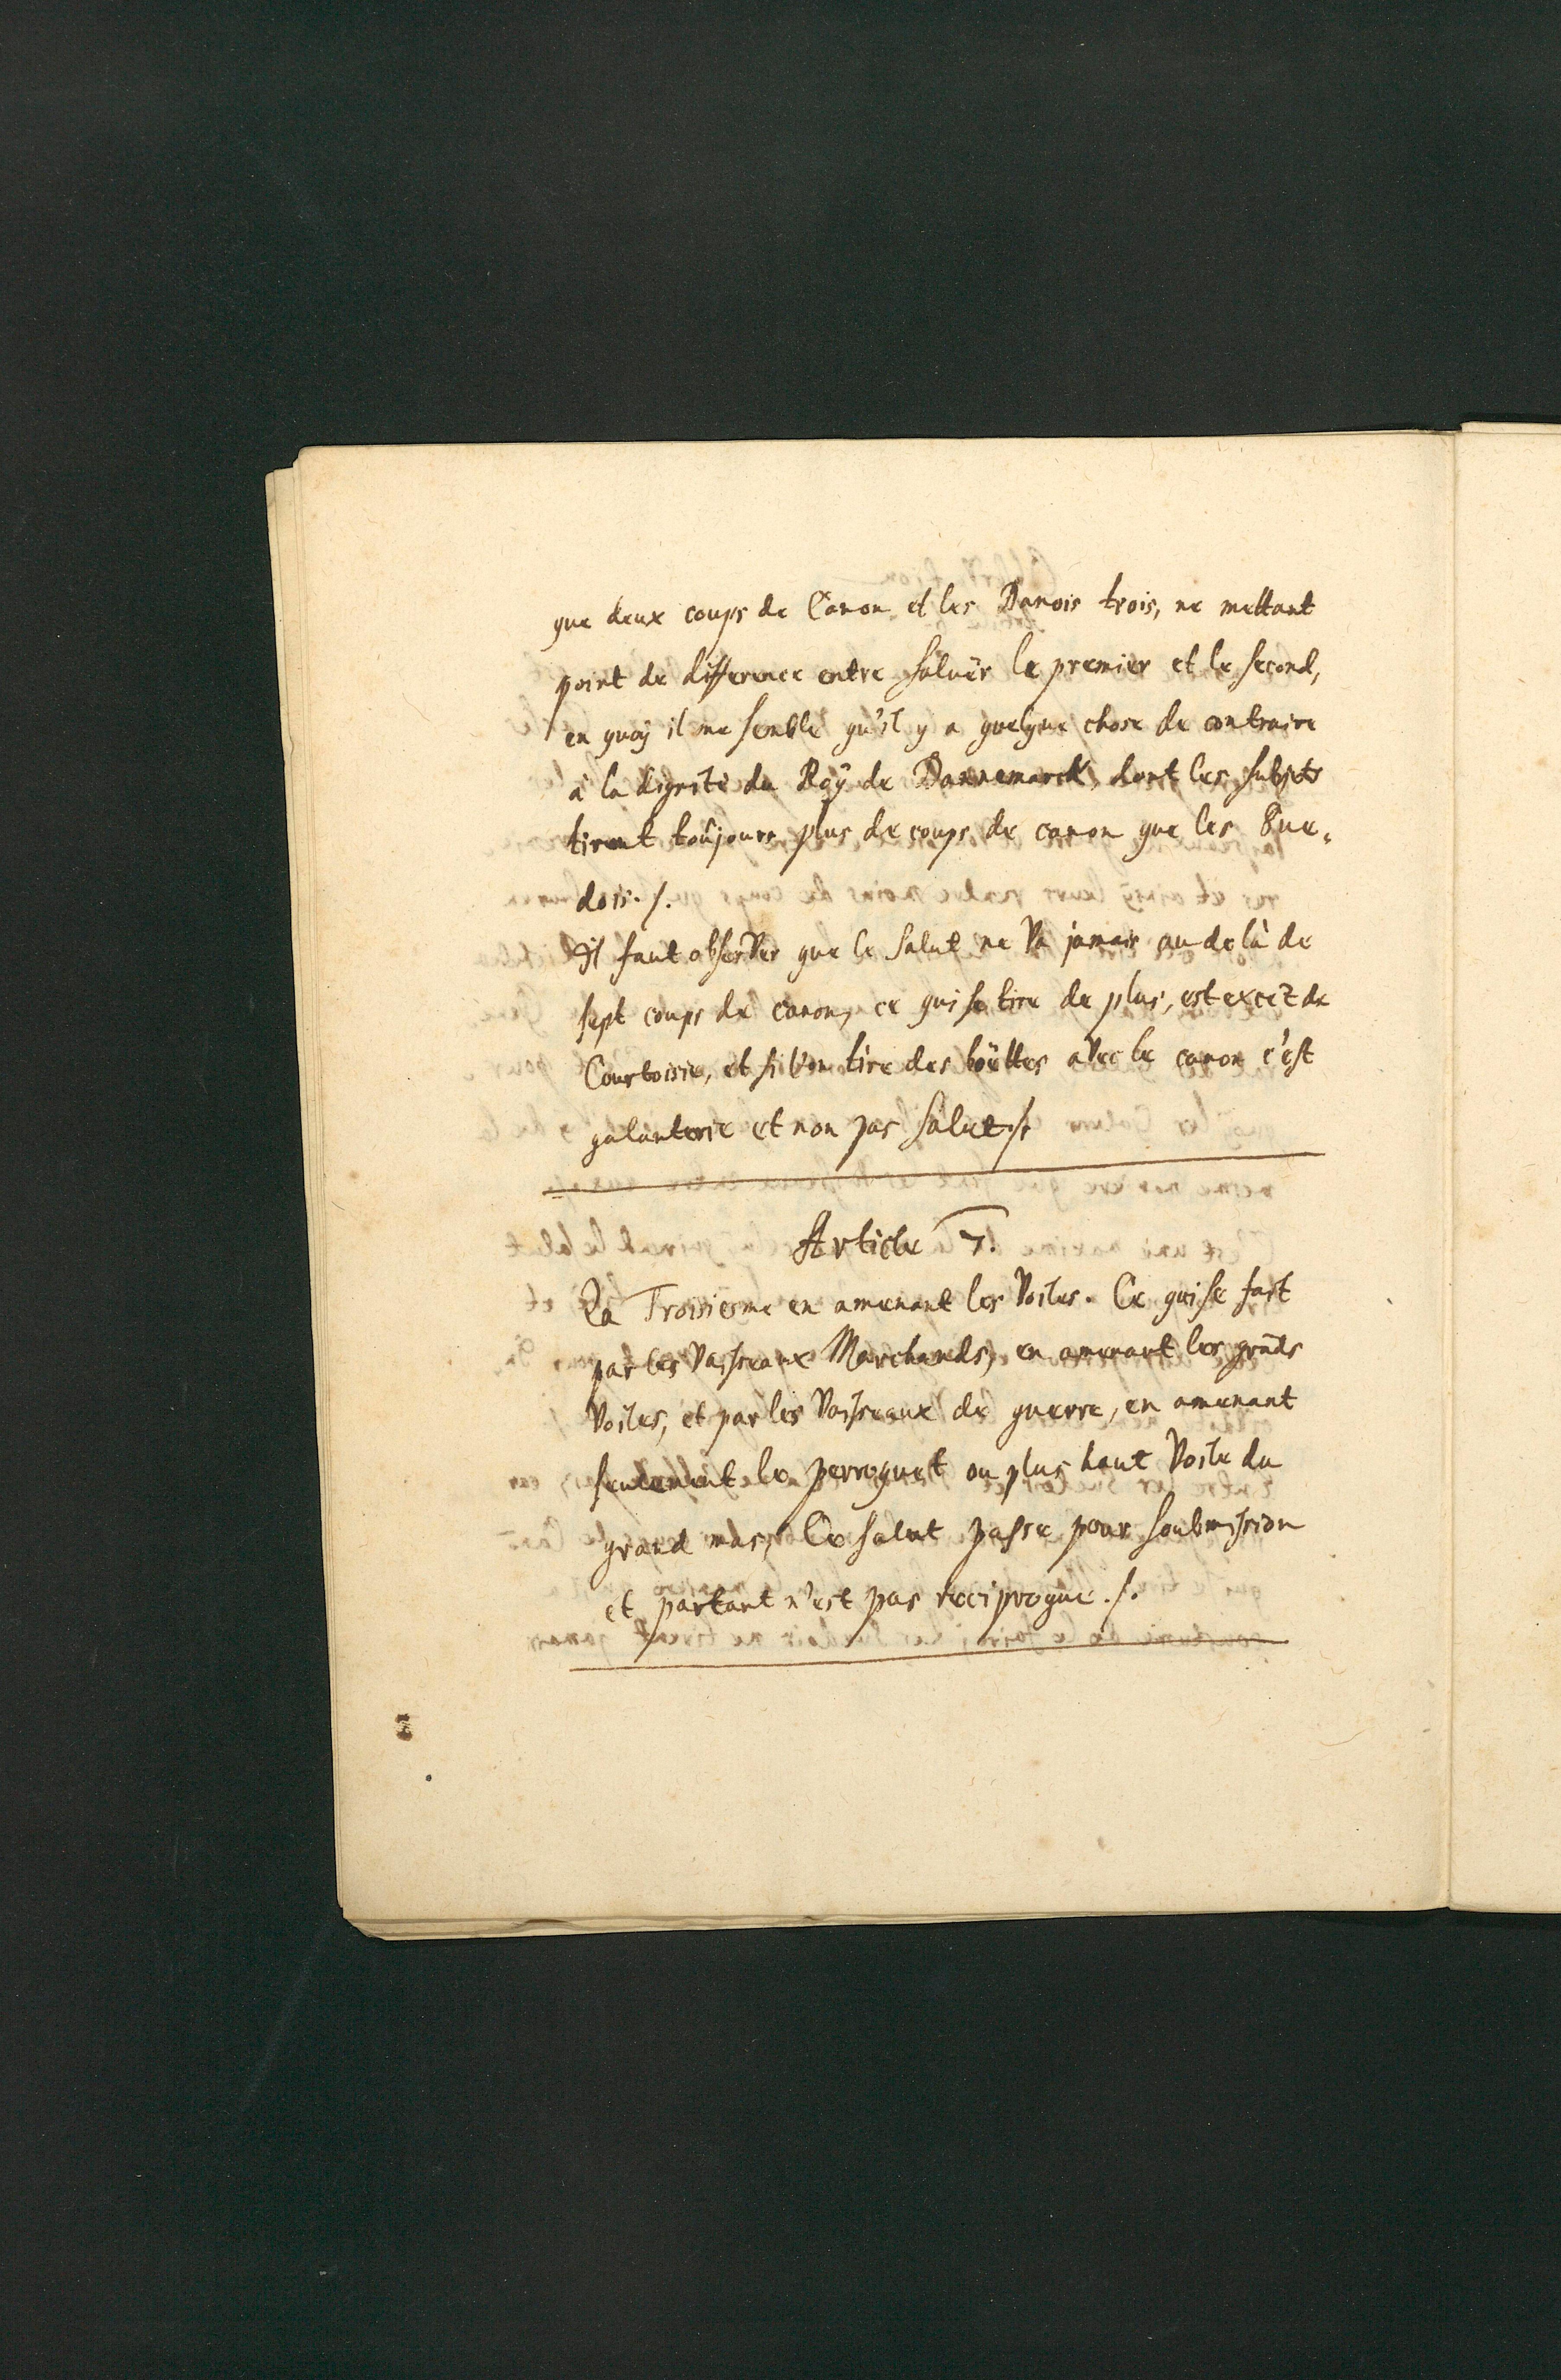 que deux coups de Canon et les Danois trois, ne mettant
point de difference entre saluër le premier et le second,
en quoÿ il me semble qu'il y a quelque chose de contraire
à la dignité du Roÿ de Dannemarck, dont les subjets
tirent toûjours plus de coups de canon que les Sue-
dois./.
Il faut observer que le salut ne va jamais au delà de
sept coups de canon, ce qui se tire de plus, est excez de
Courtoisie, et si l'on tire des boëttes avec le canon c'est
galanterie et non pas salut./.
Article 7.
La Troisiesme en amenant les Voiles. Ce qui se fait
par les Vaisseaux Marchands, en amenant les grñds
Voiles, et par les Vaisseaux de guerre, en amenant
seulement le perroquet ou plus haut Voile du
grand mas, Ce salut passe pour soubmission
et partant n'est pas reciproque./.